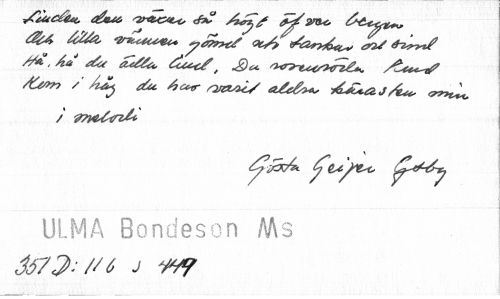 Linden den växer så högt öfver bergen
Och lilla vännen gömd uti tankar och sind
Hå, hå du ädla lind, Du rosenröda kind
Kom i håg du har varit aldra kärasten min
i melodi
Gösta Geijer
ULMA Bondeson Ms
351 D: 116 s 449